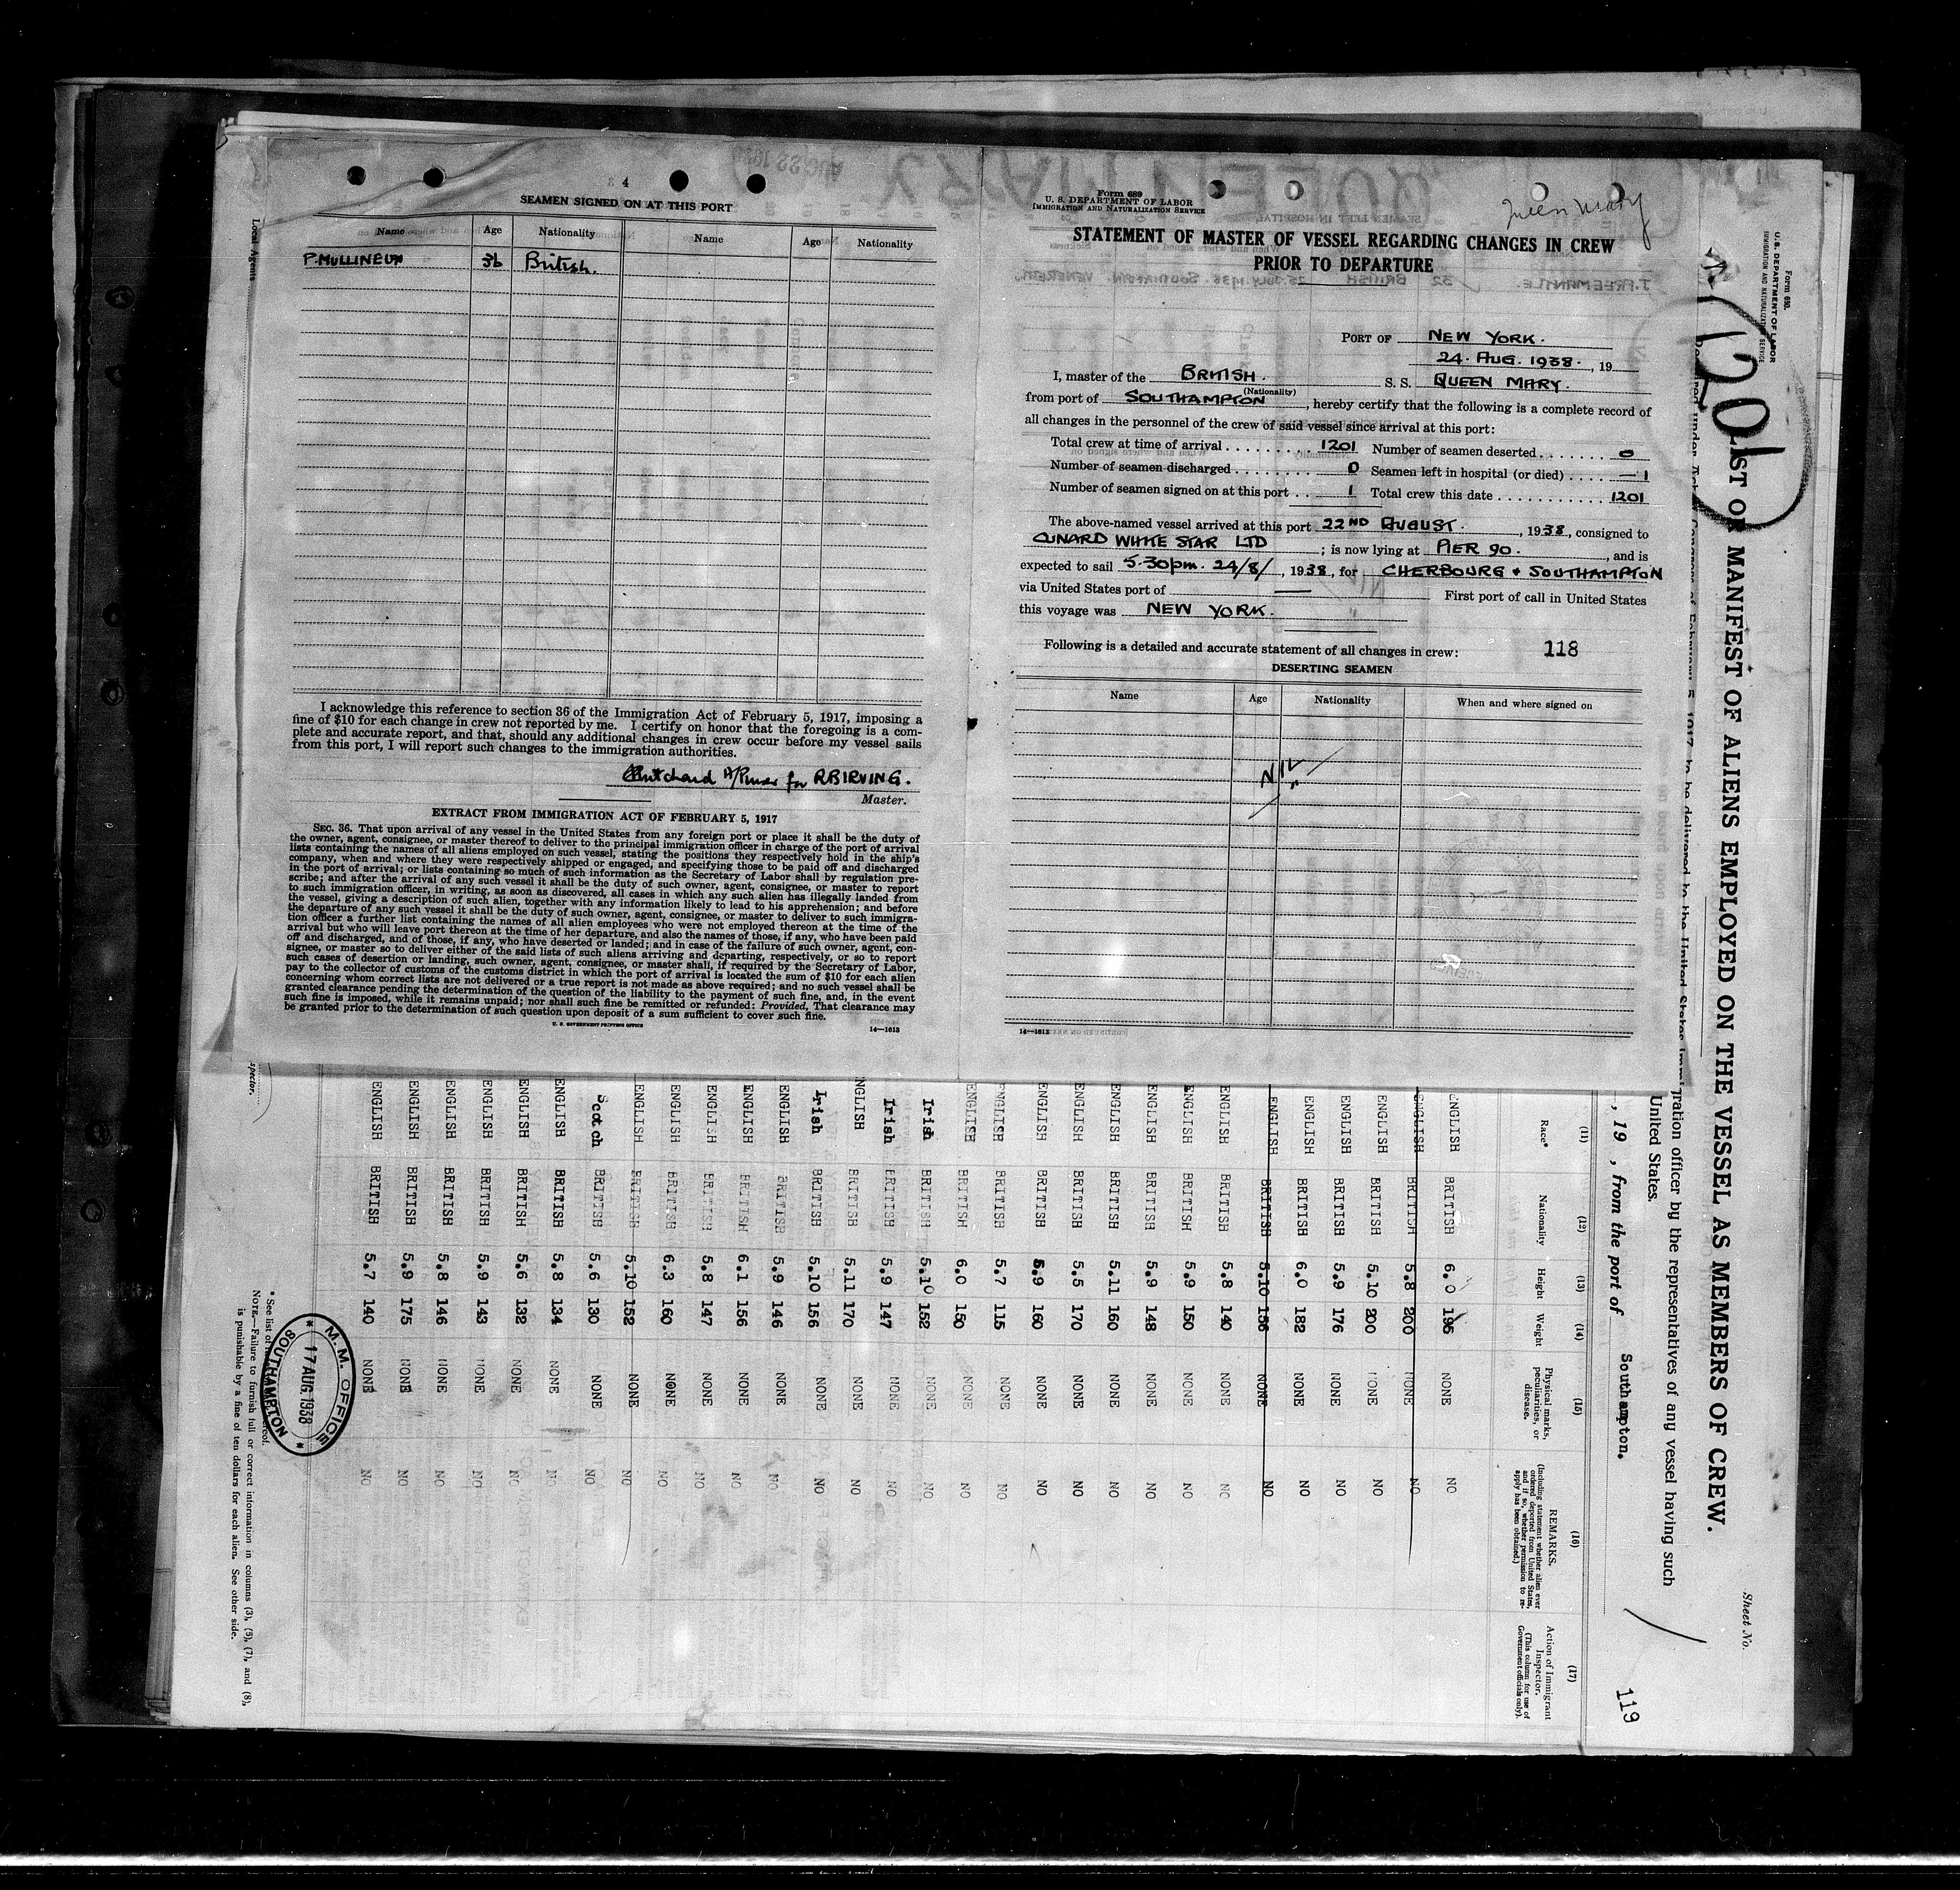 4
SEAMEN SIGNED ON AT THIS PORT
Name Age Nationality Name Age Nationality
P. MULLINEUX 36 British.
I acknowledge this reference to section 36 of the Immigration Act of February 5, 1917, imposing a
fine of $10 for each change in crew not reported by me. I certify on honor that the foregoing is a com-
plete and accurate report, and that, should any additional changes in crew occur before my vessel sails
from this port, I will report such changes to the immigration authorities.
Pritchard A/Purser for R.B. IRVING.
Master.
EXTRACT FROM IMMIGRATION ACT OF FEBRUARY 5, 1917
SEC. 36. That upon arrival of any vessel in the United States from any foreign port or place it shall be the duty of
the owner, agent, consignee, or master thereof to deliver to the principal immigration officer in charge of the port of arrival
lists containing the names of all aliens employed on such vessel, stating the positions they respectively hold in the ship's
company, when and where they were respectively shipped or engaged, and specifying those to be paid off and discharged
in the port of arrival; or lists containing so much of such information as the Secretary of Labor shall by regulation pre-
scribe; and after the arrival of any such vessel it shall be the duty of such owner, agent, consignee, or master to report
to such immigration officer, in writing, as soon as discovered, all cases in which any such alien has illegally landed from
the vessel, giving a description of such alien, together with any information likely to lead to his apprehension; and before
the departure of any such vessel it shall be the duty of such owner, agent, consignee, or master to deliver to such immigra-
tion officer a further list containing the names of all alien employees who were not employed thereon at the time of the
arrival but who will leave port thereon at the time of her departure, and also the names of those, if any, who have been paid
off and discharged, and of those, if any, who have deserted or landed; and in case of the failure of such owner, agent, con-
signee, or master so to deliver either of the said lists of such aliens arriving and departing, respectively, or so to report
such cases of desertion or landing, such owner, agent, consignee, or master shall, if required by the Secretary of Labor,
pay to the collector of customs of the customs district in which the port of arrival is located the sum of $10 for each alien
concerning whom correct lists are not delivered or a true report is not made as above required; and no such vessel shall be
granted clearance pending the determination of the question of the liability to the payment of such fine, and, in the event
such fine is imposed, while it remains unpaid; nor shall such fine be remitted or refunded: Provided, That clearance may
be granted prior to the determination of such question upon deposit of a sum sufficient to cover such fine.
U. S. GOVERNMENT PRINTING OFFICE 14—1613
Form 689
U. S. DEPARTMENT OF LABOR
IMMIGRATION AND NATURALIZATION SERVICE
Queen Mary
STATEMENT OF MASTER OF VESSEL REGARDING CHANGES IN CREW
PRIOR TO DEPARTURE
PORT OF NEW YORK.
24. AUG. 1938. , 19
I, master of the BRITISH. S. S. QUEEN MARY.
(Nationality)
from port of SOUTHAMPTON, hereby certify that the following is a complete record of
all changes in the personnel of the crew of said vessel since arrival at this port:
Total crew at time of arrival 1201 Number of seamen deserted 0
Number of seamen discharged 0 Seamen left in hospital (or died) 1
Number of seamen signed on at this port 1 Total crew this date 1201
The above-named vessel arrived at this port 22ND AUGUST. , 1938, consigned to
CUNARD WHITE STAR LTD ; is now lying at PIER 90. , and is
expected to sail 5.30pm. 24/8/, 1938, for CHERBOURG & SOUTHAMPTON
via United States port of —— First port of call in United States
this voyage was NEW YORK.
Following is a detailed and accurate statement of all changes in crew: 118
DESERTING SEAMEN
Name Age Nationality When and where signed on
NIL
14—1613
Local Agents
Form 680.
U. S. DEPARTMENT OF LABOR
IMMIGRATION AND NATURALIZATION SERVICE
120
LIST OR MANIFEST OF ALIENS EMPLOYED ON THE VESSEL AS MEMBERS OF CREW.
Sheet No.
ration officer by the representatives of any vessel having such
United States.
, 19 , from the port of Southampton.
119
(11) (12) (13) (14) (15) (16) (17)
Race* Nationality Height Weight Physical marks, peculiarities, or disease. REMARKS. (Including statement whether alien ever ordered deported from United States, and if so, whether permission to re-apply has been obtained.) Action of Immigrant Inspector. (This column for use of Government officials only).
ENGLISH BRITISH 6.0 195 NONE NO
ENGLISH BRITISH 5.8 200 NONE NO
ENGLISH BRITISH 5.10 200 NONE NO
ENGLISH BRITISH 5.9 176 NONE NO
ENGLISH BRITISH 6.0 182 NONE NO
ENGLISH BRITISH 5.10 156 NONE NO
ENGLISH BRITISH 5.8 140 NONE NO
ENGLISH BRITISH 5.9 150 NONE NO
ENGLISH BRITISH 5.9 148 NONE NO
ENGLISH BRITISH 5.11 160 NONE NO
ENGLISH BRITISH 5.5 170 NONE NO
ENGLISH BRITISH 5.9 160 NONE NO
ENGLISH BRITISH 5.7 115 NONE NO
ENGLISH BRITISH 6.0 150 NONE NO
Irish BRITISH 5.10 152 NONE NO
Irish BRITISH 5.9 147 NONE NO
ENGLISH BRITISH 5.11 170 NONE NO
Irish BRITISH 5.10 156 NONE NO
ENGLISH BRITISH 5.9 146 NONE NO
ENGLISH BRITISH 6.1 156 NONE NO
ENGLISH BRITISH 5.8 147 NONE NO
ENGLISH BRITISH 6.3 160 NONE NO
ENGLISH BRITISH 5.10 152 NONE NO
Scotch BRITISH 5.6 130 NONE NO
ENGLISH BRITISH 5.8 134 NONE NO
ENGLISH BRITISH 5.6 132 NONE NO
ENGLISH BRITISH 5.9 143 NONE NO
ENGLISH BRITISH 5.8 146 NONE NO
ENGLISH BRITISH 5.9 175 NONE NO
ENGLISH BRITISH 5.7 140 NONE NO
* See list of
NOTE.—Failure to furnish full or correct information in columns (3), (5), (7), and (8),
is punishable by a fine of ten dollars for each alien. See other side.
M. M. OFFICE
17 AUG 1938
SOUTHAMPTON